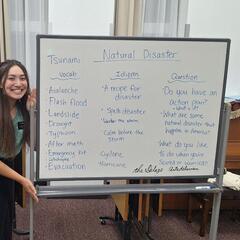 Tsunami
Natural Disaster
Vocab
Avalanche
Flash flood
Landslide
Drought
Typhoon
After math
Emergency kit
Evacuation
Idiom
"A recipe for
disaster
"Spells disaster
"Weather the storm
"Calm before the
storm
Cyclone
Hurricane
Question
"Do you have an
action plan?
- What is it?
"What are some
natural disaster that
happens in America?
What do you like
to do when you're
scared or worried?
the